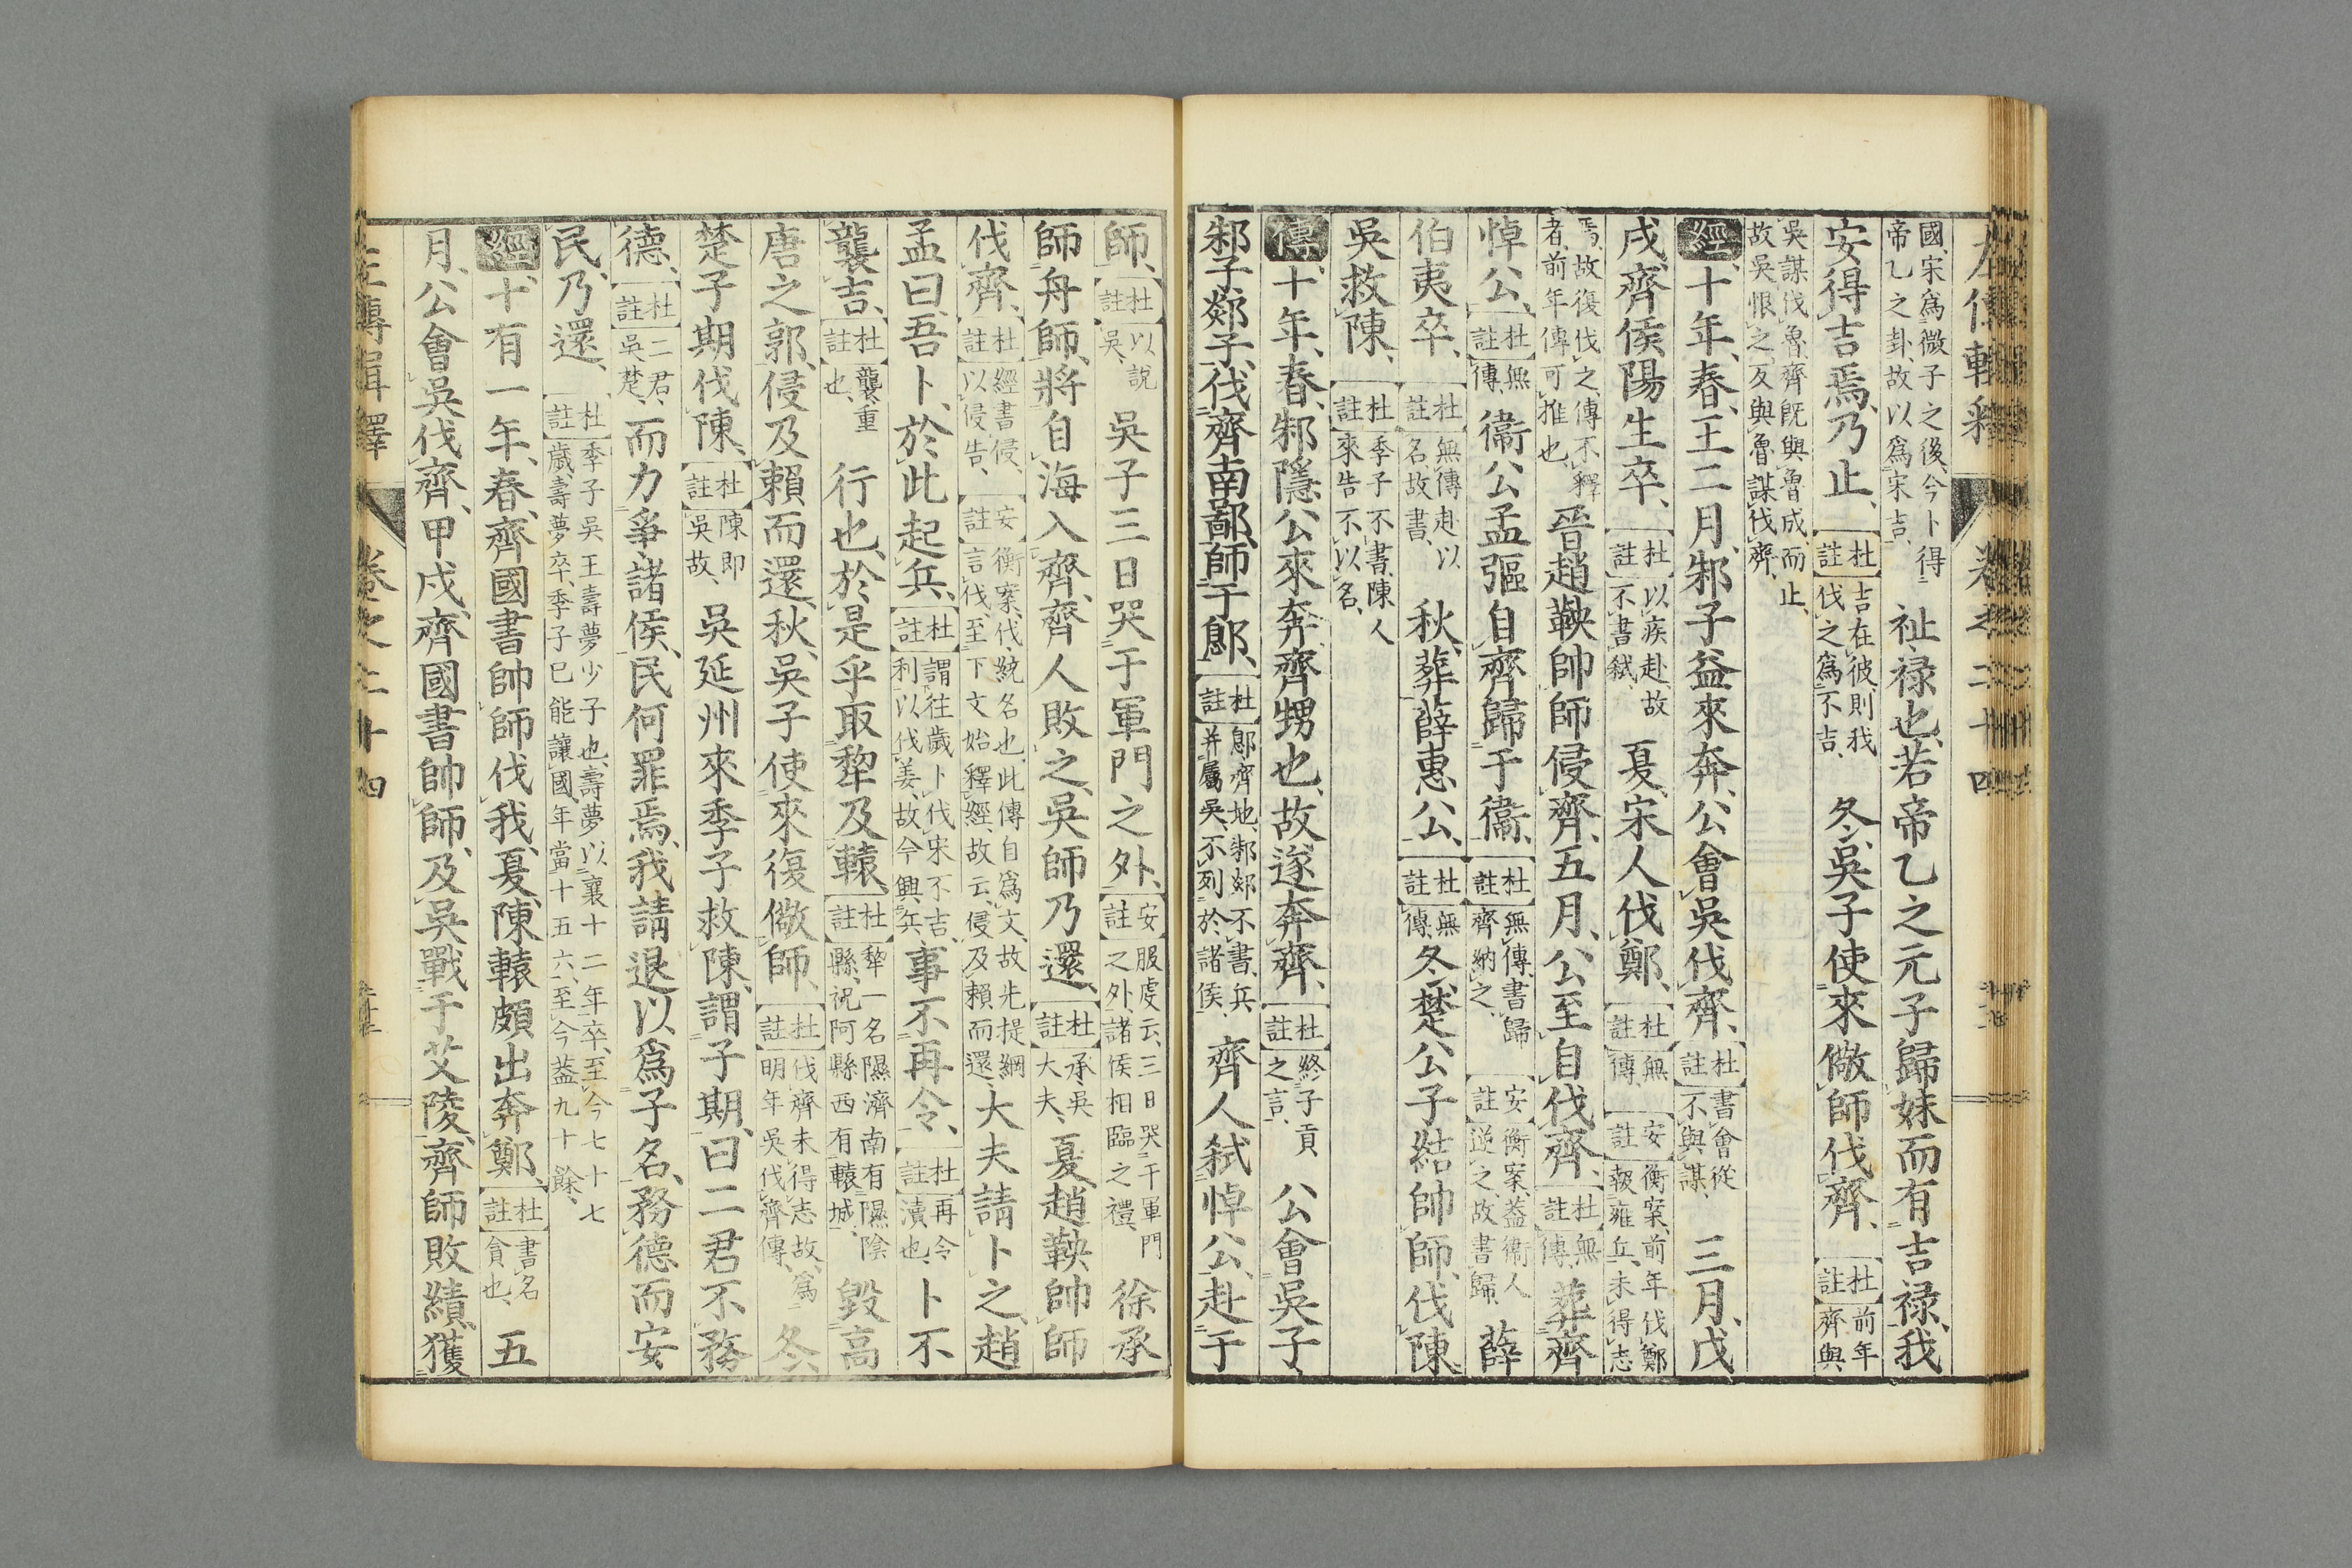 國、宋爲微子之後、今卜得
帝乙之卦、故以爲宋吉、
祉、禄也、若帝乙之元子歸妹而有吉禄、我
安得吉焉、乃止、
杜註
吉在彼則我
伐之爲不吉、
冬、吳子使來儆師伐齊、
杜註
前年
齊與
吳謀伐魯、齊既與魯成而止、
故吳恨之、反與魯謀伐齊、
經十年、春、王二月、邾子益來奔、公會吳伐齊、
杜註
書會從
不與謀、
三月、戊
戌、齊侯陽生卒、
杜註
以疾赴、故
不書弑、
夏、宋人伐鄭、
杜註
無
傳、
安註
衡案、前年伐鄭
報雍丘、未得志
焉、故復伐之、傳不釋
者、前年傳可推也、
晉趙鞅帥師侵齊、五月、公至自伐齊、
杜註
無
傳、
葬齊
悼公、
杜註
無
傳、
衞公孟彄自齊歸于衞、
杜註
無傳、書歸
齊納之、
安註
衡案、蓋衞人
逆之、故書歸、
薛
伯夷卒、
杜註
無傳、赴以
名、故書、
秋、葬薛惠公、
杜註
無
傳、
冬、楚公子結帥師伐陳、
吳救陳、
杜註
季子不書、陳人
來告不以名、
傳十年、春、邾隱公來奔、齊甥也、故遂奔齊、
杜註
終子貢
之言、
公會吳子、
邾子、郯子、伐齊南鄙、師于鄎、
杜註
鄎、齊地、邾郯不書、兵
并屬吳、不列於諸侯、
齊人弑悼公、赴于
師、
杜註
以說
吳、
吳子三日哭于軍門之外、
安註
服虔云、三日哭于軍門
之外、諸侯相臨之禮、
徐承
師舟師、將自海入齊、齊人敗之、吳師乃還、
杜註
承、吳
大夫、
夏、趙鞅帥師
伐齊、
杜註
經書侵、
以侵告、
安註
衡案、伐、統名也、此傳自爲文、故先提綱
言伐、至下文始釋經、故云、侵及賴而還、
大夫請卜之、趙
孟曰、吾卜、於此起兵、
杜註
謂往歲卜伐宋不吉、
利以伐姜、故今興兵、
事不再令、
杜註
再令
瀆也、
卜不
襲吉、
杜註
襲、重
也、
行也、於是乎取犂及轅、
杜註
犂一名隰、濟南有隰陰
縣、祝阿縣西有轅城、
毀高
唐之郭、侵及賴而還、秋、吳子使來復儆師、
杜註
伐齊未得志故、爲
明年吳伐齊傳、
冬、
楚子期伐陳、
杜註
陳即
吳故、
吳延州來季子救陳、謂子期、曰、二君不務
德、
杜註
二君、
吳楚、
而力爭諸侯、民何罪焉、我請退以爲子名、務德而安
民、乃還、
杜註
季子、吳王壽夢少子也、壽夢以襄十二年卒、至今七十七
歲、壽夢卒、季子已能讓國、年當十五六、至今蓋九十餘、
經、十有一年、春、齊國書帥師伐我、夏、陳轅頗出奔鄭、
杜註
書名
貪也、
五
月、公會吳伐齊、甲戌、齊國書帥師、及吳戰于艾陵、齊師敗績、獲
左傳輯釋
卷之二十四